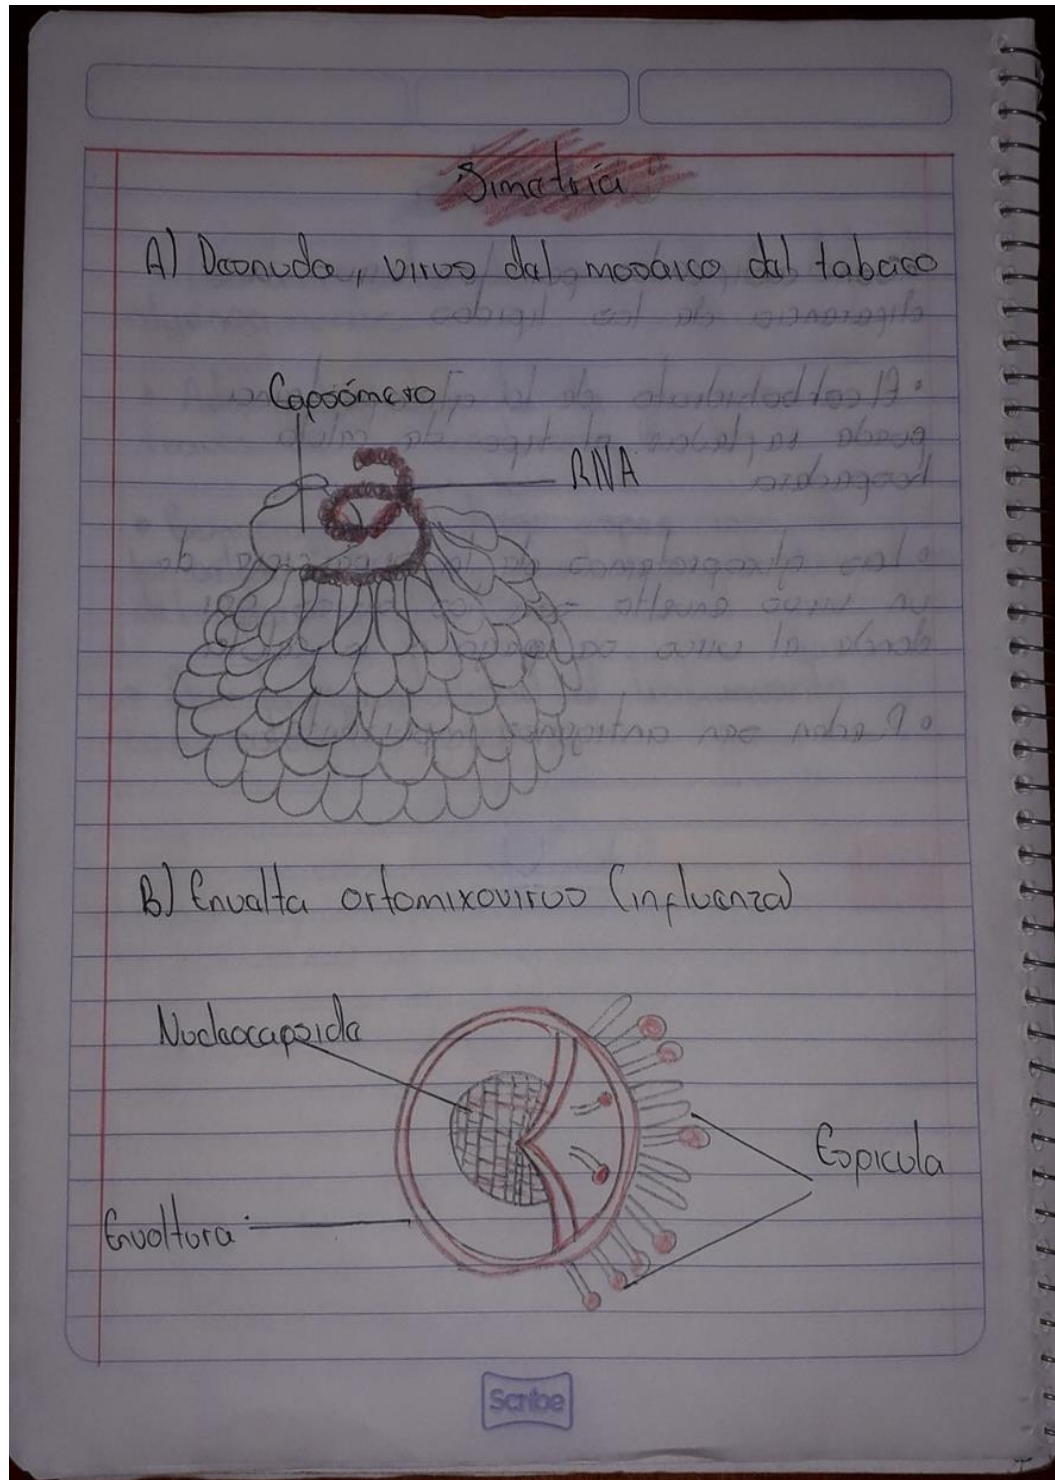 Simetría
A) Desnuda, virus del mosaico del tabaco
Capsómero
RNA
B) Envelta ortomixovirus (influenza)
Nucleocapsida
Espicula
Envoltura
Scribe